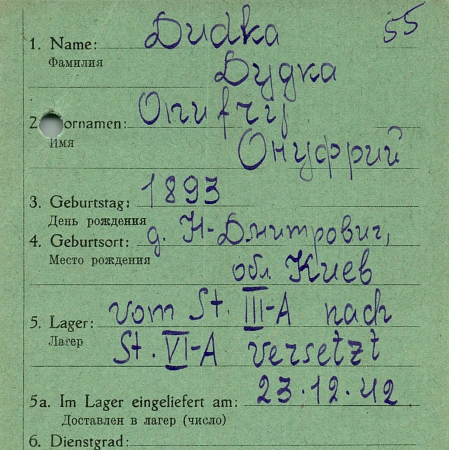 55
1. Name: Дидка
Фамилия
Дудка
2. Vornamen: Onufrij
Имя
Онуфрий
3. Geburtstag: 1893
День рождения
4. Geburtsort: д. Н-Дмитрович,
Место рождения
обл Киев
5. Lager: vom St. III-A nach
Лагер
St. VI-A versetzt
5a. Im Lager eingeliefert am: 23.12.42
Доставлен в лагер (число)
6. Dienstgrad: